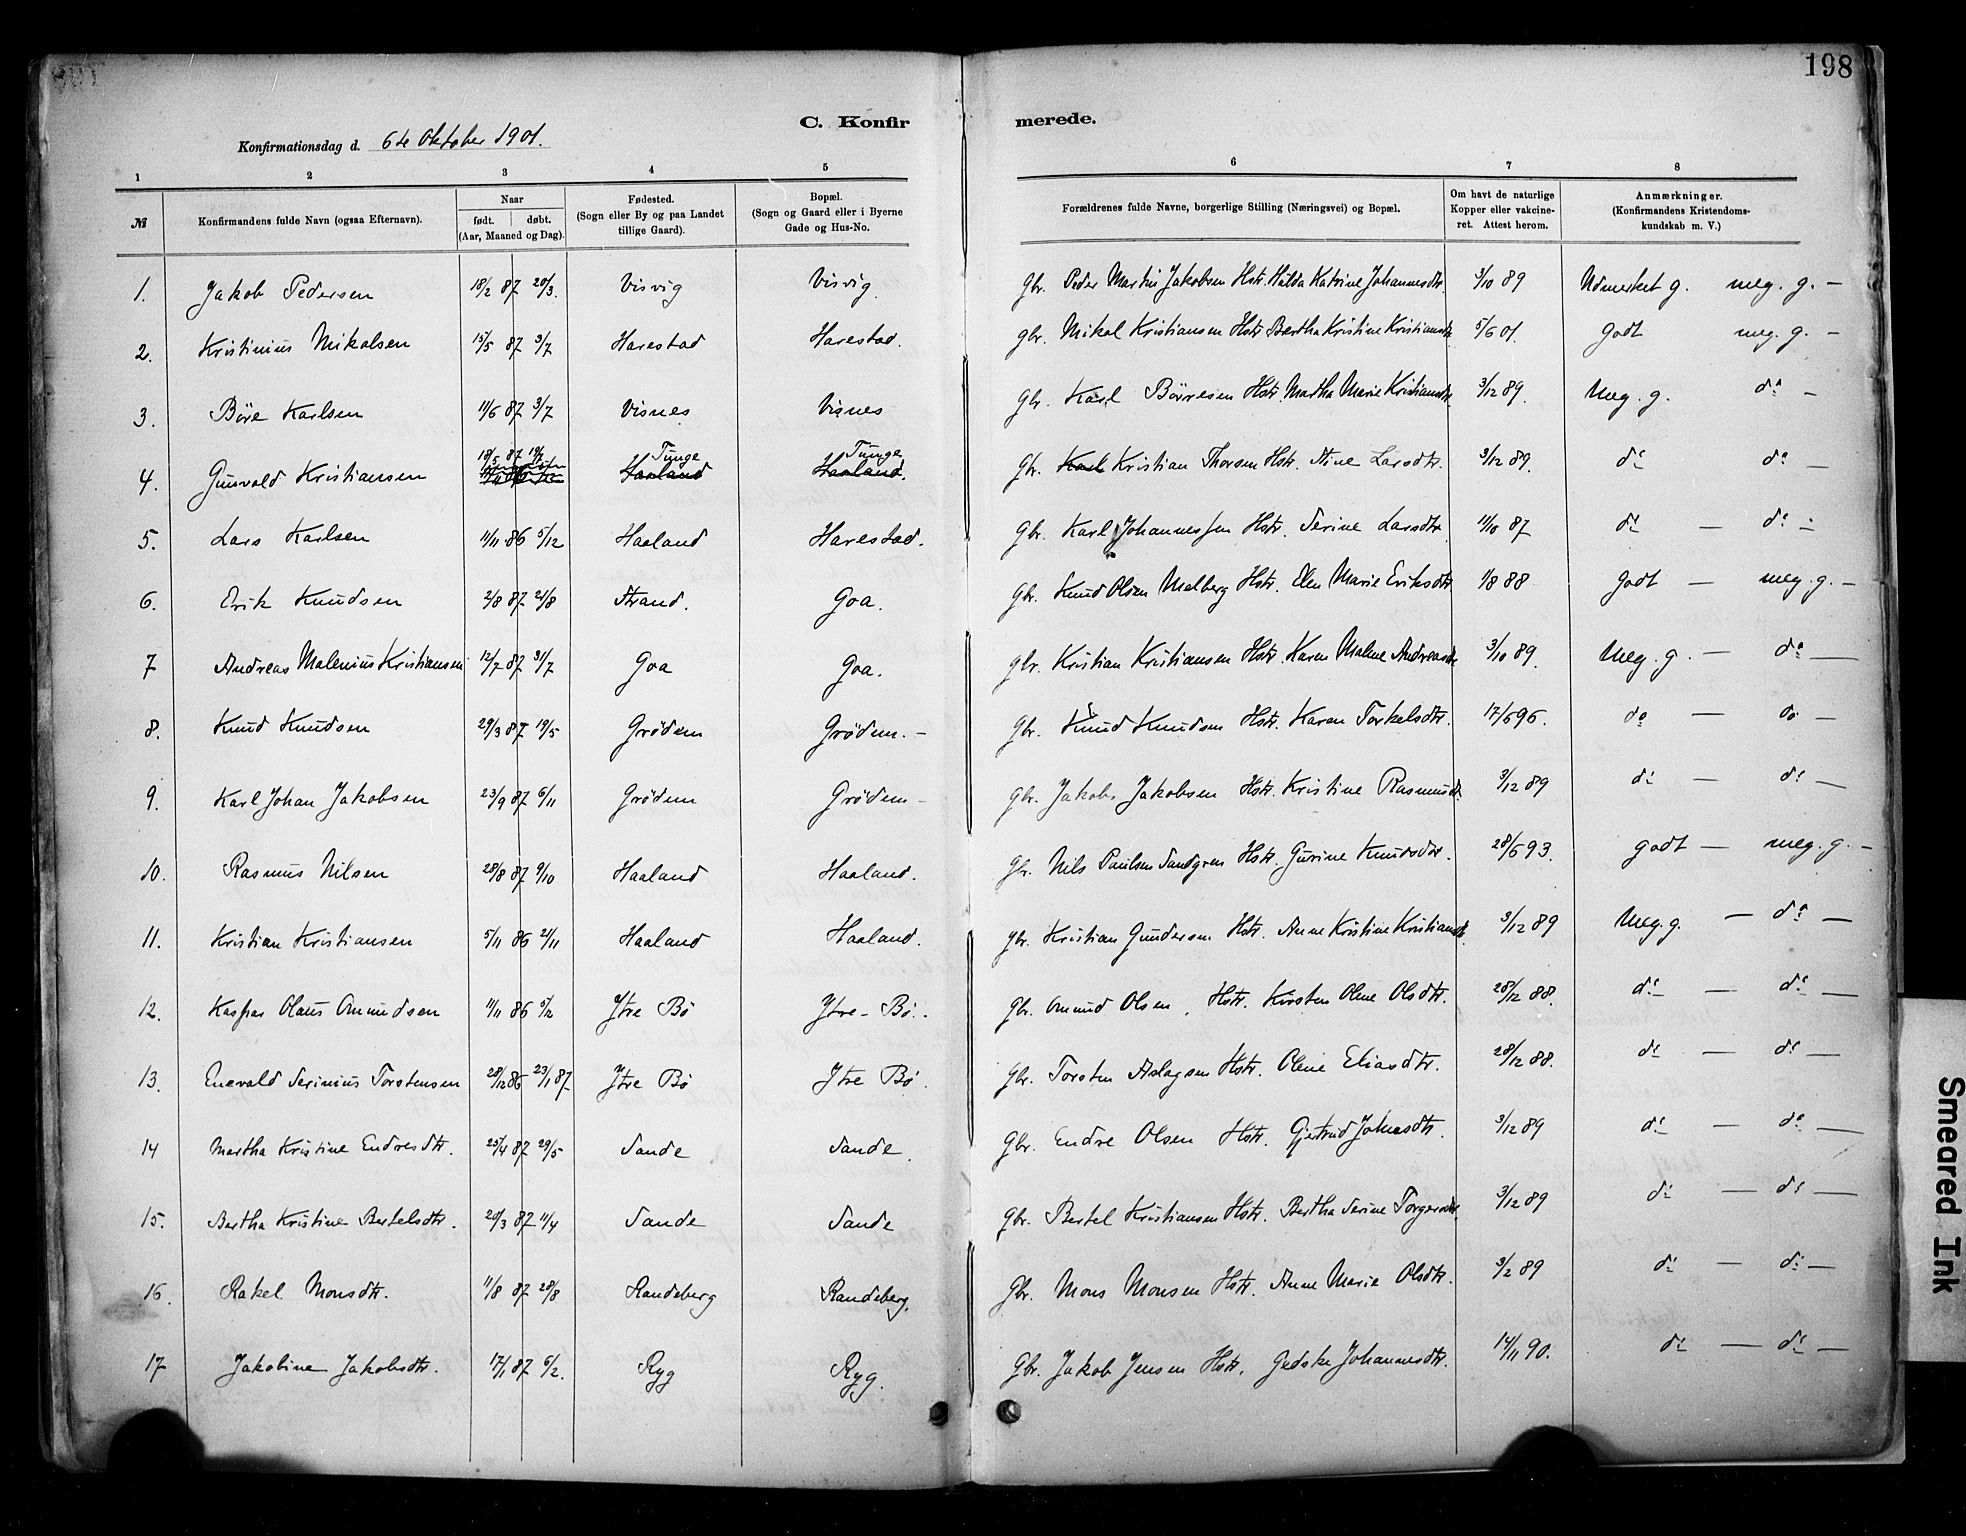 198
C. Konfirmerede.
Konfirmationsdag d. 6te Oktober 1901.
1 2 3 4 5 6 7 8
№ | Konfirmandens fulde Navn (ogsaa Efternavn). | Naar født. døbt. (Aar, Maaned og Dag). | Fødested. (Sogn eller By og paa Landet tillige Gaard). | Bopæl. (Sogn og Gaard eller i Byerne Gade og Hus-No. | Forældrenes fulde Navne, borgerlige Stilling (Næringsvei) og Bopæl. | Om havt de naturlige Kopper eller vakcineret. Attest herom. | Anmærkninger. (Konfirmandens Kristendomskundskab m. V.)
1. Jakob Pedersen 18/2 87 20/3. Visvig Visvig. Gbr. Peder Martin Jakobsen Hstr. Hilda Katrine Johannesdtr. 3/10 89 Udmerket g. meg. g. –
2. Kristinius Mikalsen 15/5 87 3/7 Harestad Harestad. gbr. Mikal Kristiansen Hstr Bertha Kristine Kristiansdtr 5/6 01. godt meg. g. –
3. Böre Karlsen 11/6 87 3/7 Visnes Visnes gbr. Karl Börresen Hstr. Martha Marie Kristiansdtr. 3/12 89. Meg. g. do –
4. Gunvald Kristiansen 18/5 87 19/6 Tunge Haaland Tunge Haaland. Gbr. Karl Kristian Thorsen Hstr. Stine Larsdtr. 3/12 89. do do –
5. Lars Karlsen 11/11 86 5/12 Haaland Harestad. Gbr. Karl Johannessen Hstr. Serine Larsdtr 11/10 87 do – do –
6. Erik Knudsen 2/8 87 21/8 Strand. Goa. gbr. Knud Olsen Malberg Hstr. Elen Marie Eriksdtr 1/8 88 godt – meg. g. –
7 Andreas Malenius Kristiansen 12/7 87 31/7 Goa Goa. gbr. Kristian Kristiansen Hstr. Karen Malene Andreasdtr 3/10 89. Meg. g. – do –
8. Knud Knudsen 29/3 87 19/5 Grödem Grödem. – gbr. Knud Knudsen Hstr. Karen Torkelsdtr. 17/6 96. do – do –
9. Karl Johan Jakobsen 23/9 87 6/11 Grödem Grödem – gbr. Jakob Jakobsen Hstr. Kristine Rasmusdtr. 3/12 89 do – do –
10. Rasmus Nilsen 28/8 87 9/10 Haaland Haaland. Gbr. Nils Paulsen Sandgren Hstr. Gurine Knudsdtr. 28/6 93. godt – meg. g. –
11. Kristian Kristiansen 5/11 86 21/11 Haaland Haaland. gbr. Kristian Gundersen Hstr. Anne Kristine Kristiansdtr. 3/12 89 Meg. g. – do –
12. Kaspar Olaus Omundsen 11/11 86 5/12 Ytre Bö Ytre – Bö. gbr. Omund Olsen, Hstr. Kirsten Oline Olsdtr. 28/12 88. do – do –
13. Enevald Serinius Torstensen 28/12 86 23/1 87. Ytre Bö Ytre Bö. gbr. Torsten Aslagsen Hstr. Olene Eliasdtr. 28/12 88. do – do –
14 Martha Kristine Endresdtr. 25/4 87 29/5 Sande Sande. Gbr. Endre Olsen Hstr. Gjertrud Johnsdtr. 3/12 89 do – do –
15. Bertha Kristine Bertelsdtr. 20/3 87 11/4 Sande Sande Gbr. Bertel Kristiansen Hstr. Bertha Serine Torgersdtr. 3/12 89 do – do –
16. Rakel Monsdtr. 11/8 87 28/8 Randeberg Randeberg. Gbr. Mons Monsen Hstr. Anne Marie Olsdtr. 3/2 89 do – do –
17 Jakobine Jakobsdtr. 17/1 87 6/2. Ryg Ryg. Gbr. Jakob Jensen Hstr. Gedske Johannesdtr. 14/11 90. do – do –
Smeared Ink